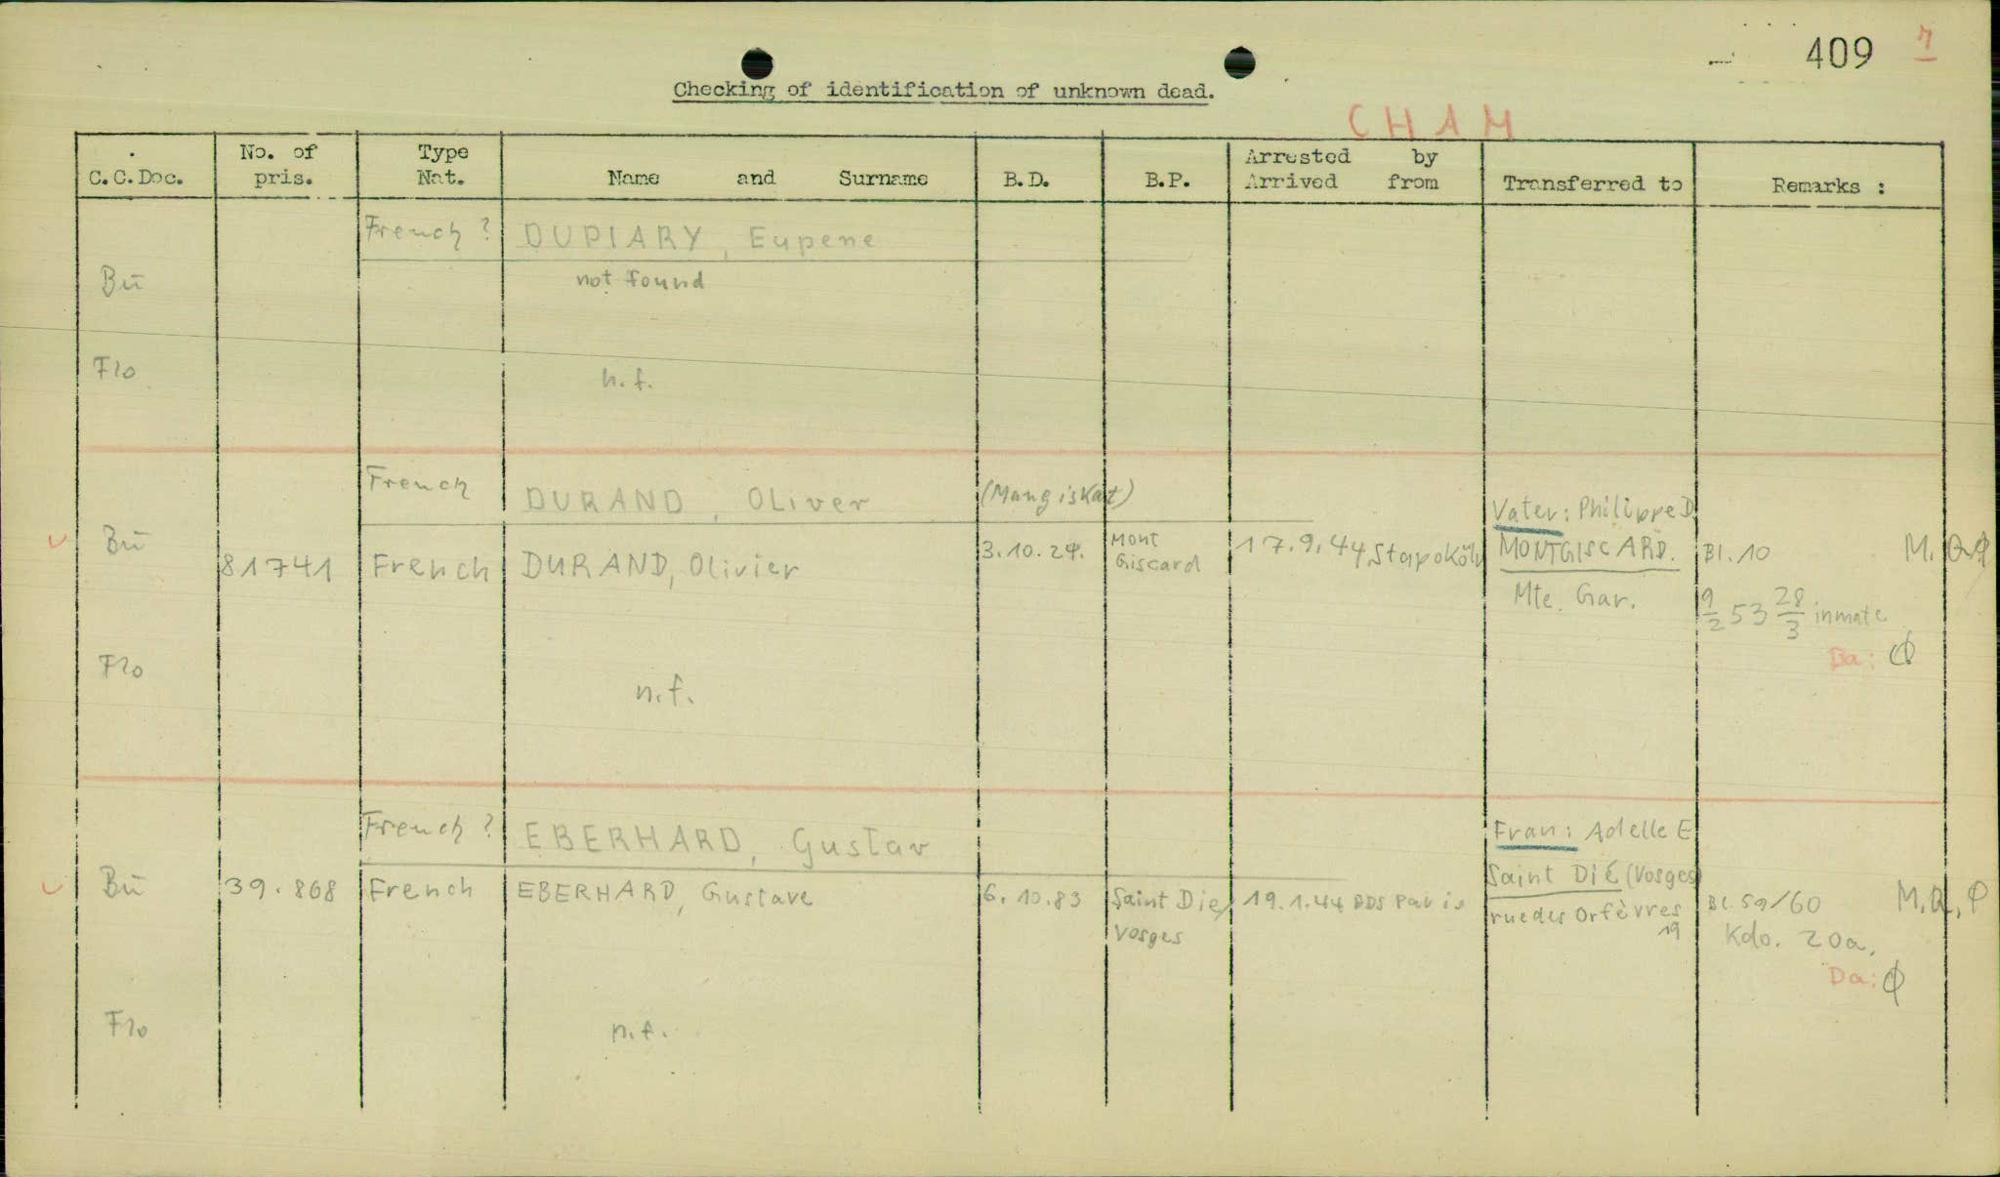 409 7
Checking of identification of unknown dead.
CHAM
C.C.Doc. No. of pris. Type Nat. Name and Surname B.D. B.P. Arrested by Arrived from Transferred to Remarks :
French ? DUPIARY, Eupene
Bü not found
Flo n.f.
French DURAND, Oliver (Mangiskat) Vater: Philippe D
Bü 81741 French DURAND, Olivier 3.10.24. Mont Giscard 17.9.44 Stapo Köln MONTGISCARD. Bl. 10 M.
Mte. Gar. 9/2 53 28/3 inmate
Da: Φ
Flo n.f.
French ? EBERHARD, Gustav Frau: Adelle E
Bü 39.868 French EBERHARD, Gustave 6.10.83 Saint Die/ Vosges 19.1.44 BDS Paris Saint DIÉ (Vosges)
rue des Orfèvres 19 Bl. 59/60 M.
Kdo. 20a,
Da: Φ
Flo n.f.